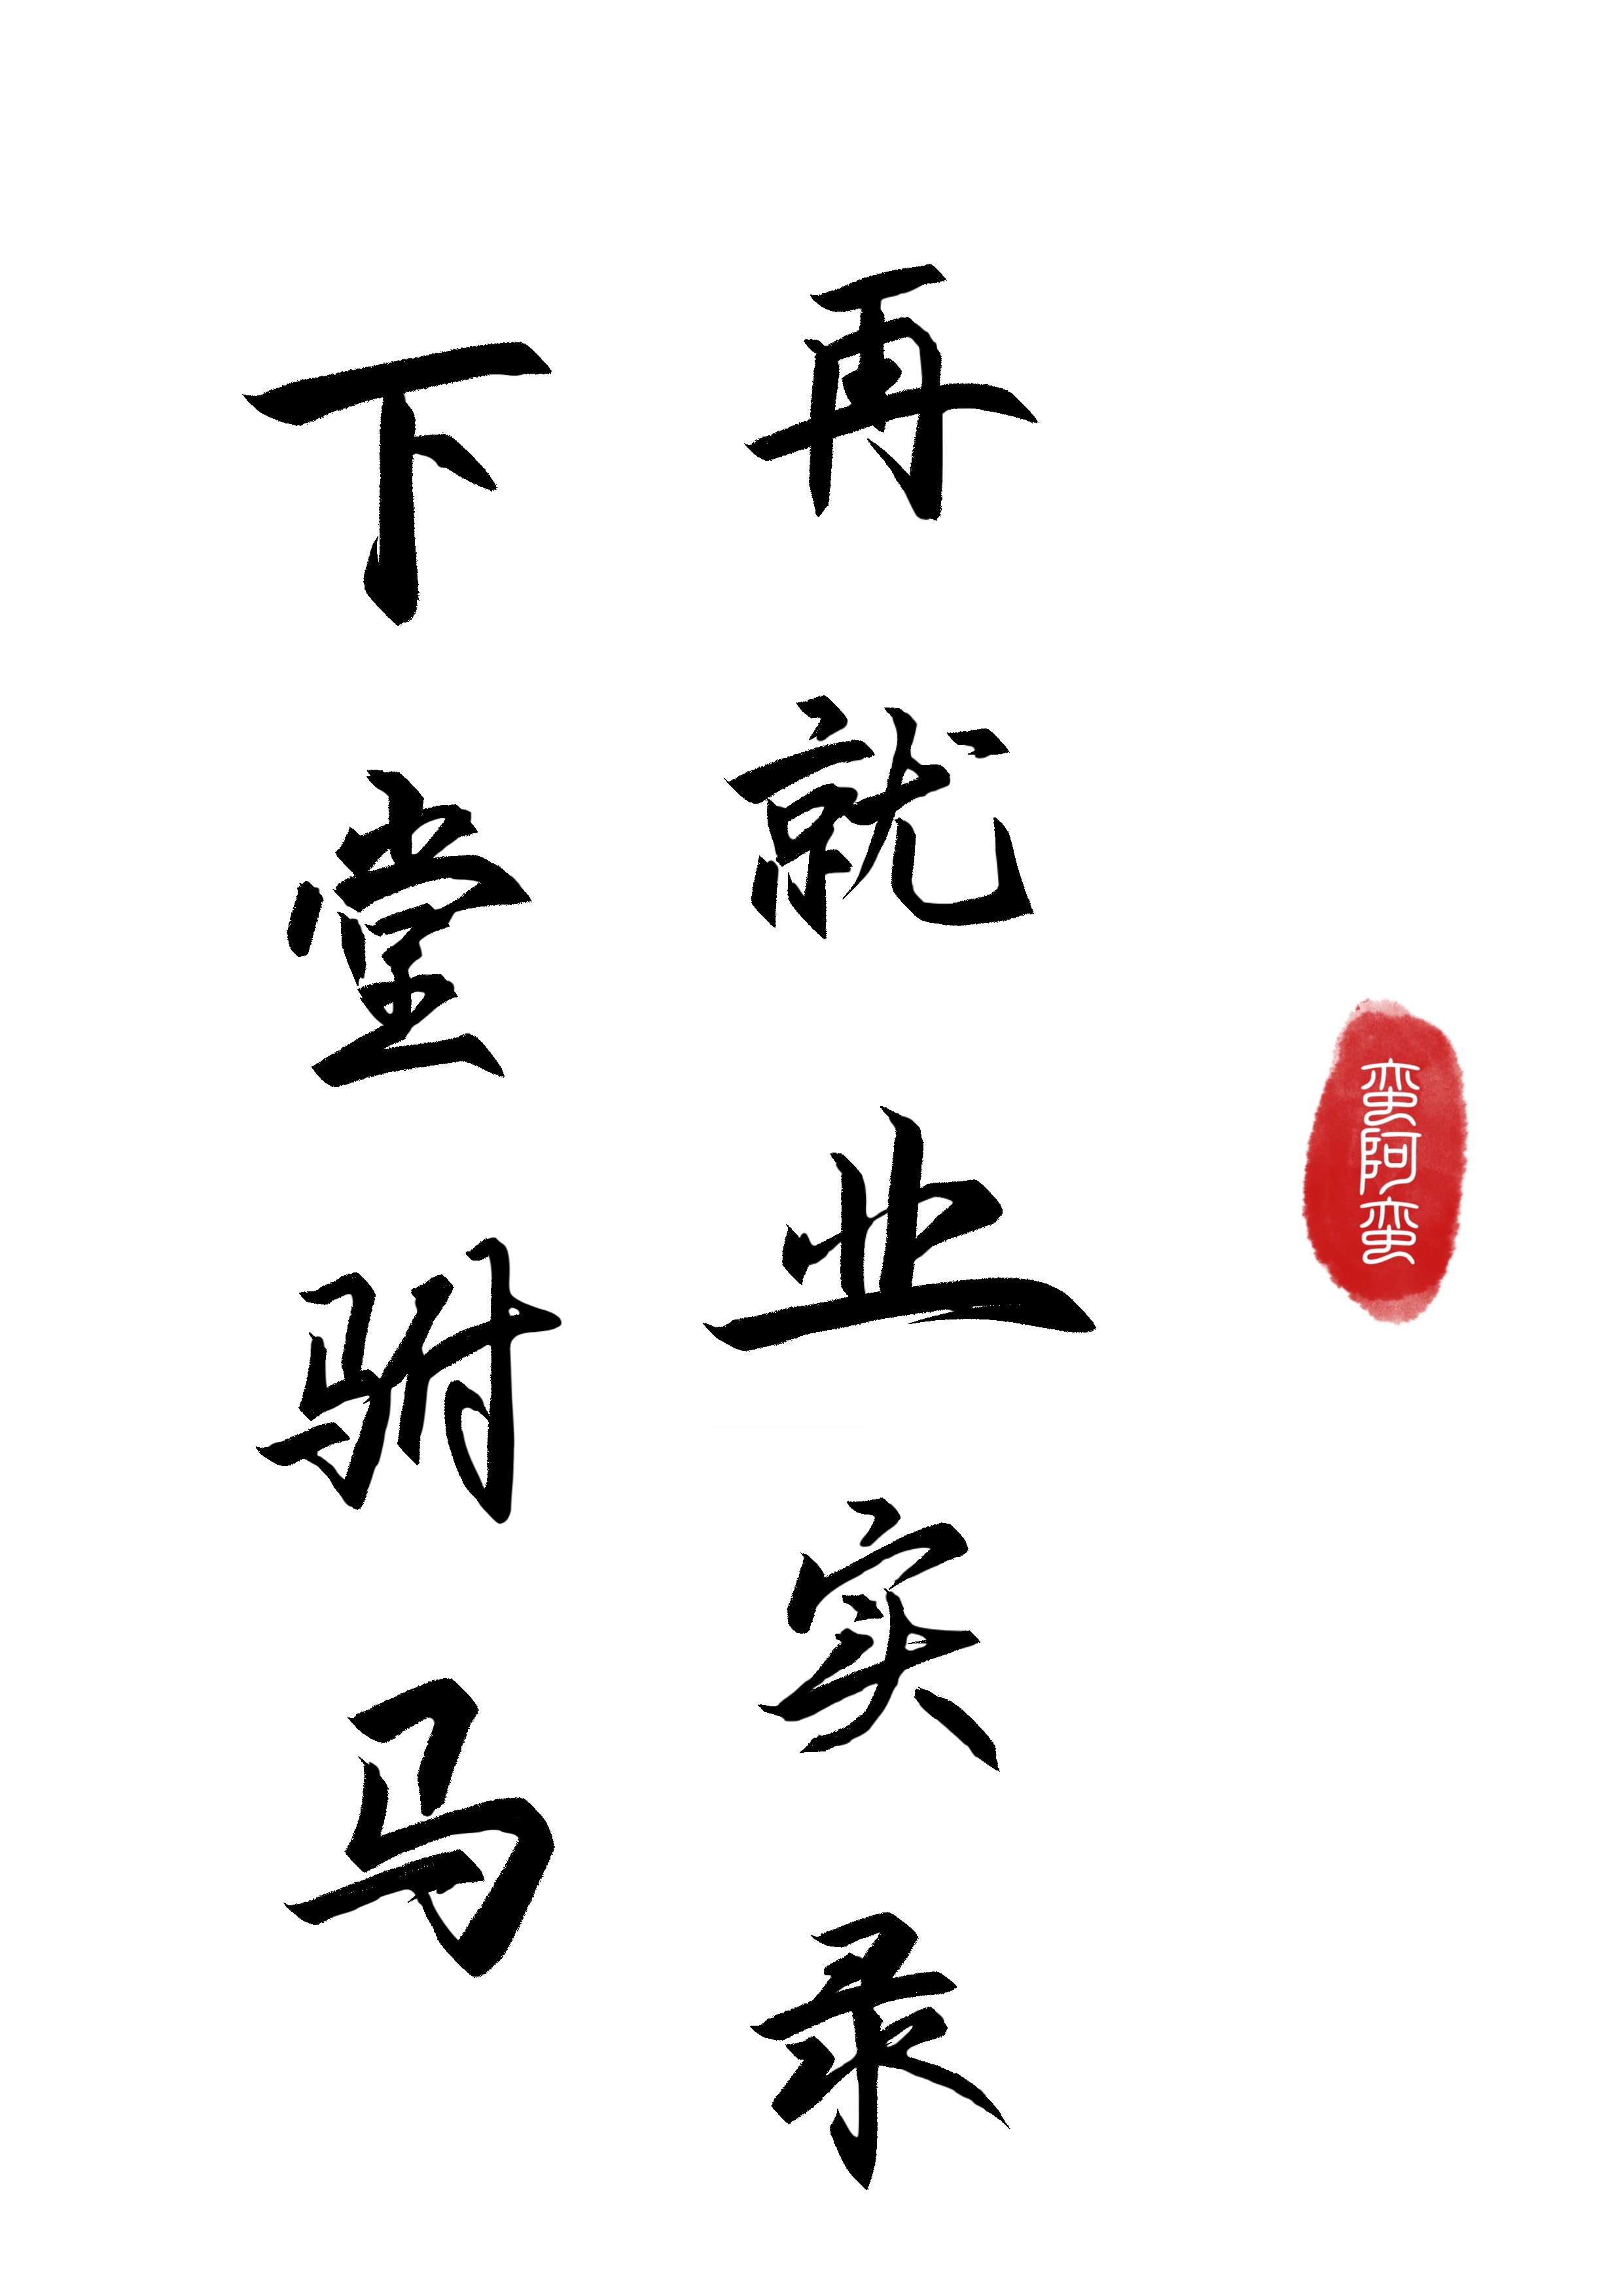 下堂驸马
再就业实录
蛮阿蛮